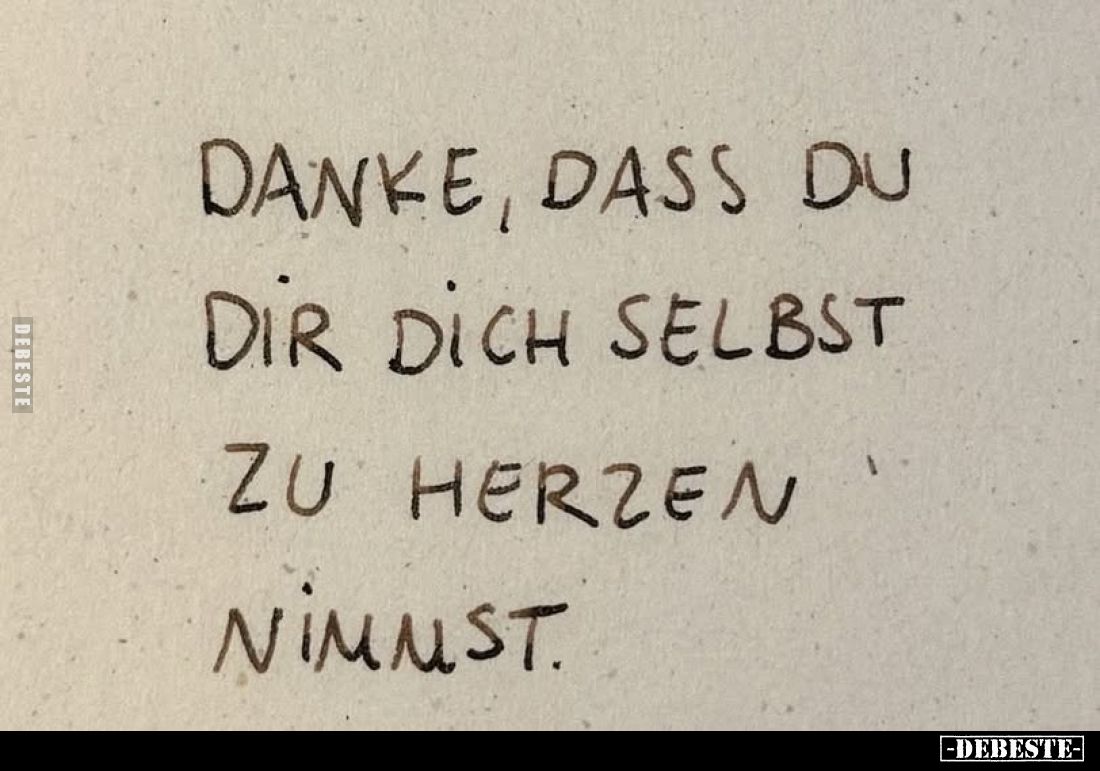 DANKE, DASS DU
DIR DICH SELBST
ZU HERZEN
NIMMST.
DEBESTE
-DEBESTE-